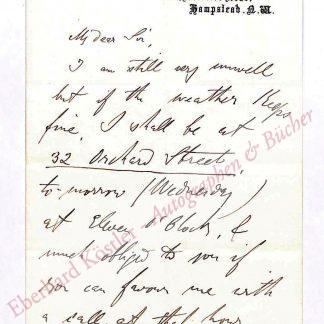 Hampstead. N.W.
My dear Sir,
I am still very unwell
but if the weather keeps
fine, I shall be at
32 Orchard Street,
to-morrow (Wednesday)
at Eleven O'Clock, &
much obliged to you if
you can favour me with
a call at that hour
Eberhard Köstler - Autographen & Bücher